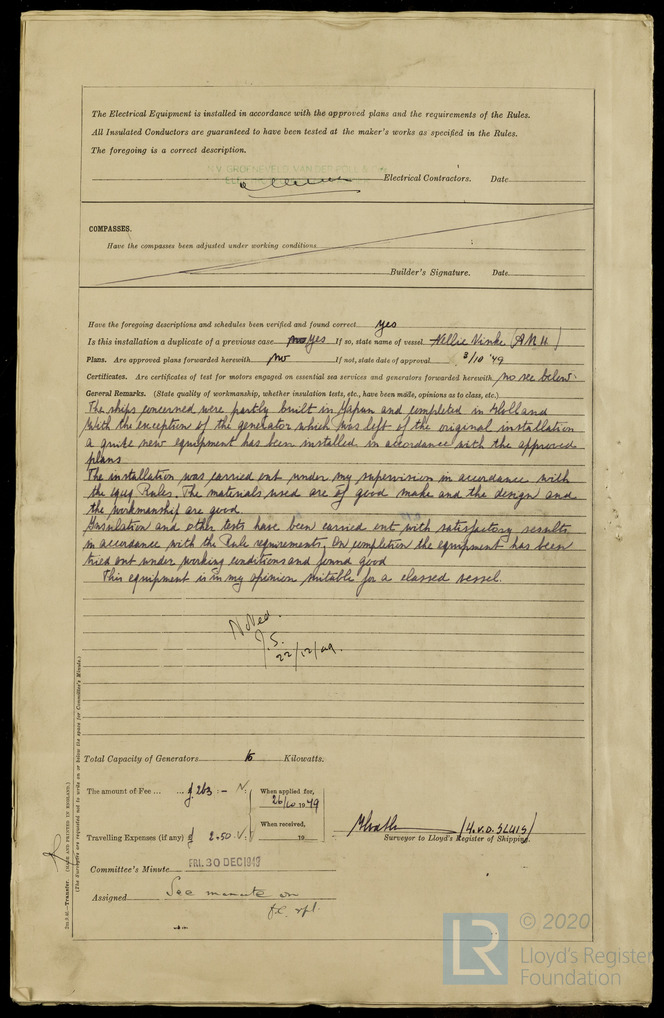 The Electrical Equipment is installed in accordance with the approved plans and the requirements of the Rules.
All Insulated Conductors are guaranteed to have been tested at the maker's works as specified in the Rules.
The foregoing is a correct description.
N.V. GROENEVELD, VAN DER POLL & Co
Electrical Contractors. Date
COMPASSES.
Have the compasses been adjusted under working conditions
Builder's Signature. Date
Have the foregoing descriptions and schedules been verified and found correct yes
Is this installation a duplicate of a previous case yes If so, state name of vessel Nellie
Plans. Are approved plans forwarded herewith no If not, state date of approval 3/10 '49
Certificates. Are certificates of test for motors engaged on essential sea services and generators forwarded herewith no see below.
General Remarks. (State quality of workmanship, whether insulation tests, etc., have been made, opinions as to class, etc.)
The ships concerned were partly built in Japan and completed in Holland
With the exception of the generator which was left of the original installation
a quite new equipment has been installed in accordance with the approved
plans.
The installation was carried out under my supervision in accordance with
the Rules. The materials used are of good make and the design and
the workmanship are good.
Insulation and other tests have been carried out with satisfactory results,
in accordance with the Rule requirements, On completion the equipment has been
tried out under working conditions and found good
This equipment is in my opinion suitable for a classed vessel.
Noted.
J.S.
22/12/49.
Total Capacity of Generators Kilowatts.
The amount of Fee ... ... f 263 : -
When applied for,
26/10 1949
When received,
19
Travelling Expenses (if any) f 2.50
(H.V.D. SLUIS)
Surveyor to Lloyd's Register of Shipping.
Committee's Minute FRI. 30 DEC 1949
Assigned See minute on
f.e. rpt.
2m.3.46.—Transfer. (MADE AND PRINTED IN ENGLAND.)
(The Surveyors are requested not to write on or below the space for Committee's Minute.)
LR
© 2020
Lloyd's Register
Foundation